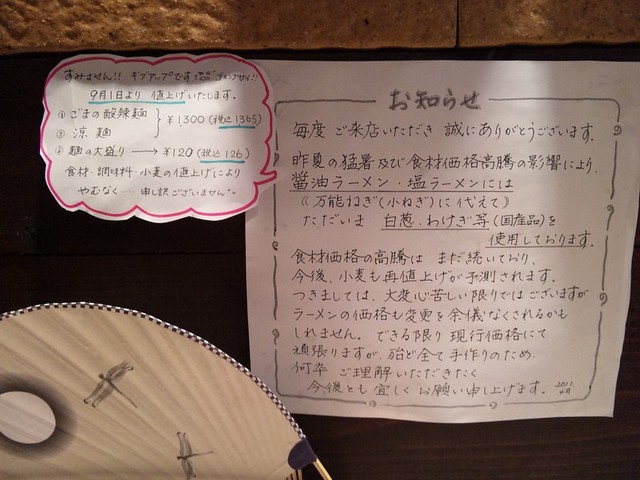 すみません!! ギブアップです ゴメンナサイ!!
9月1日より 値上げいたします。
① ごまの酸辣麺
② 涼麺
¥1300 (税込1365)
③ 麺の大盛り → ¥120 (税込126)
食材・調味料・小麦の値上げにより
やむなく… 申し訳ございません
お知らせ
毎度 ご来店いただき 誠にありがとうございます。
昨夏の猛暑及び食材価格高騰の影響により、
醤油ラーメン・塩ラーメンには
《万能ねぎ(小ねぎ)に代えて》
ただいま 白葱・わけぎ等(国産品)を
使用しております。
食材価格の高騰は まだ続いており、
今後、小麦も再値上げが予測されます。
つきましては、大変心苦しい限りではございますが
ラーメンの価格も変更を余儀なくされるかも
しれません。できる限り 現行価格にて
頑張りますが、殆ど全て手作りのため、
何卒 ご理解いただきたく
今後とも 宜しく お願い申し上げます。 2011.4月